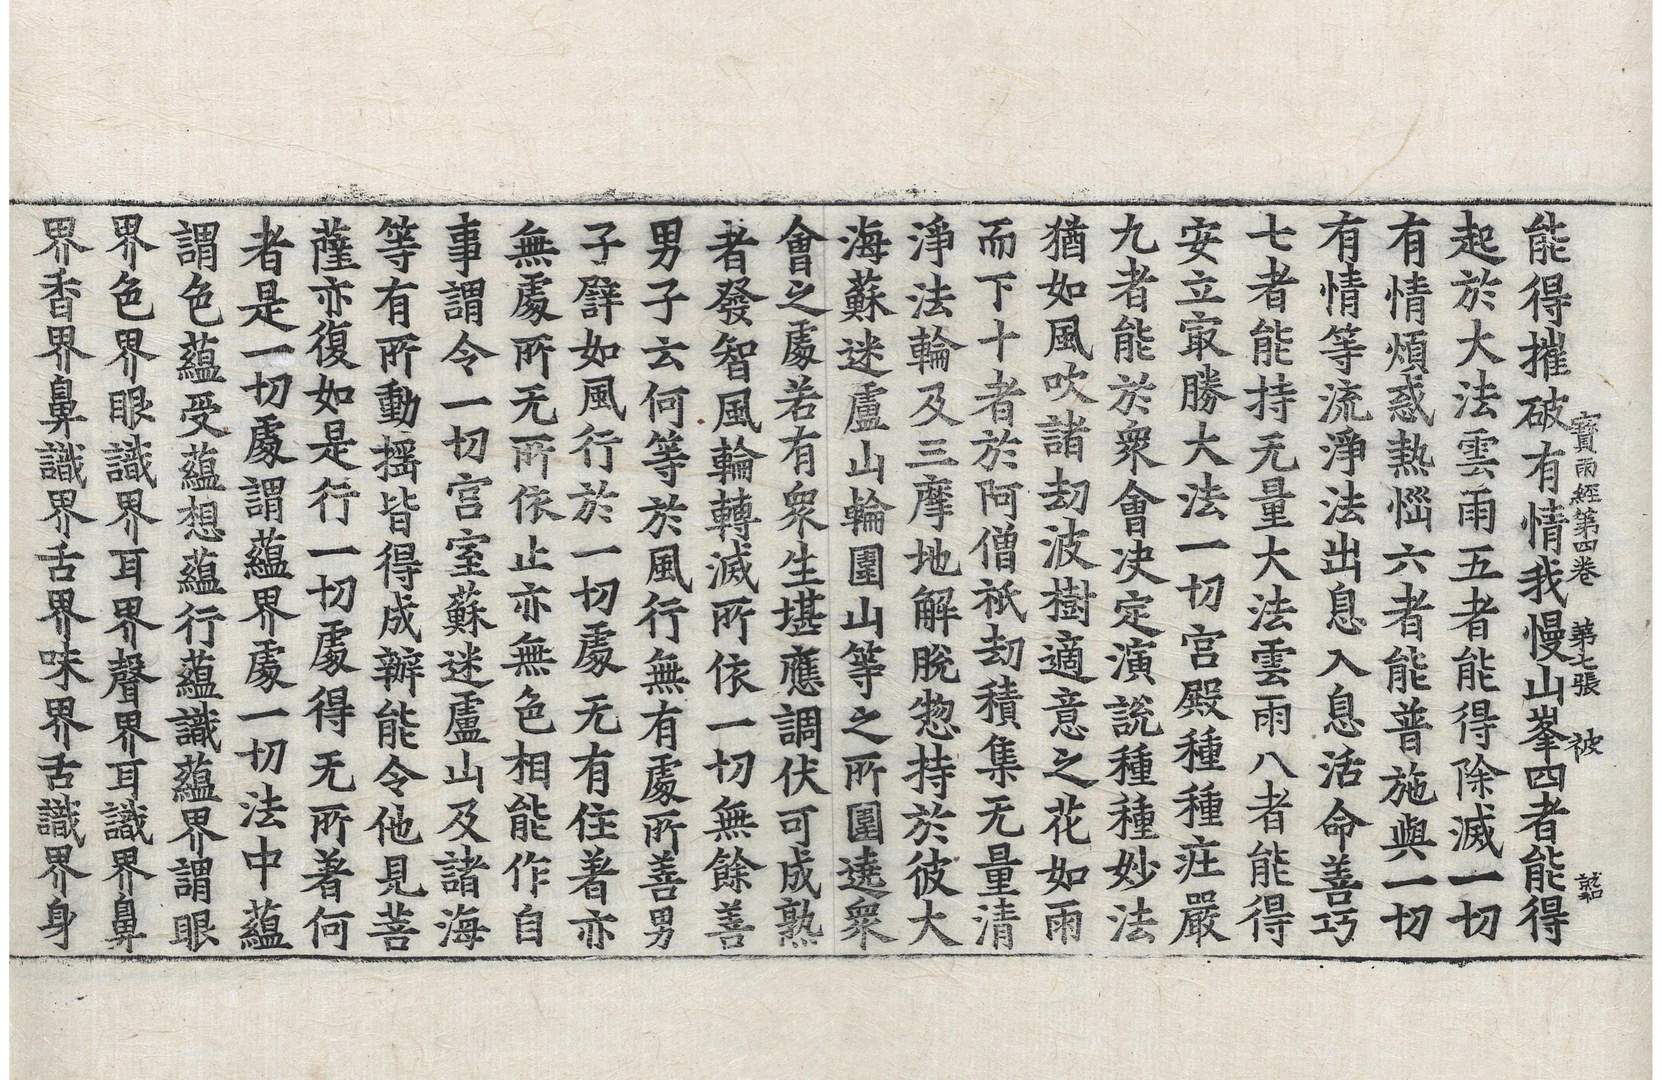 寶雨經第四卷 第七張 被
能得摧破有情我慢山峯四者能得
起於大法雲雨五者能得除滅一切
有情煩惑熱惱六者能普施與一切
有情等流淨法出息入息活命善巧
七者能持无量大法雲雨八者能得
安立㝡勝大法一切宮殿種種庄嚴
九者能於衆會决定演說種種妙法
猶如風吹諸劫波樹適意之花如雨
而下十者於阿僧祇劫積集无量清
淨法輪及三摩地解脫惣持於彼大
海蘇迷盧山輪圍山等之所圍遶衆
會之處若有衆生堪應調伏可成熟
者發智風輪轉滅所依一切無餘善
男子云何等於風行無有處所善男
子譬如風行於一切處无有住著亦
無處所无所依止亦無色相能作自
事謂令一切宮室蘇迷盧山及諸海
等有所動搖皆得成辦能令他見菩
薩亦復如是行一切處得无所著何
者是一切處謂蘊界處一切法中蘊
謂色蘊受蘊想蘊行蘊識蘊界謂眼
界色界眼識界耳界聲界耳識界鼻
界香界鼻識界舌界味界舌識界身